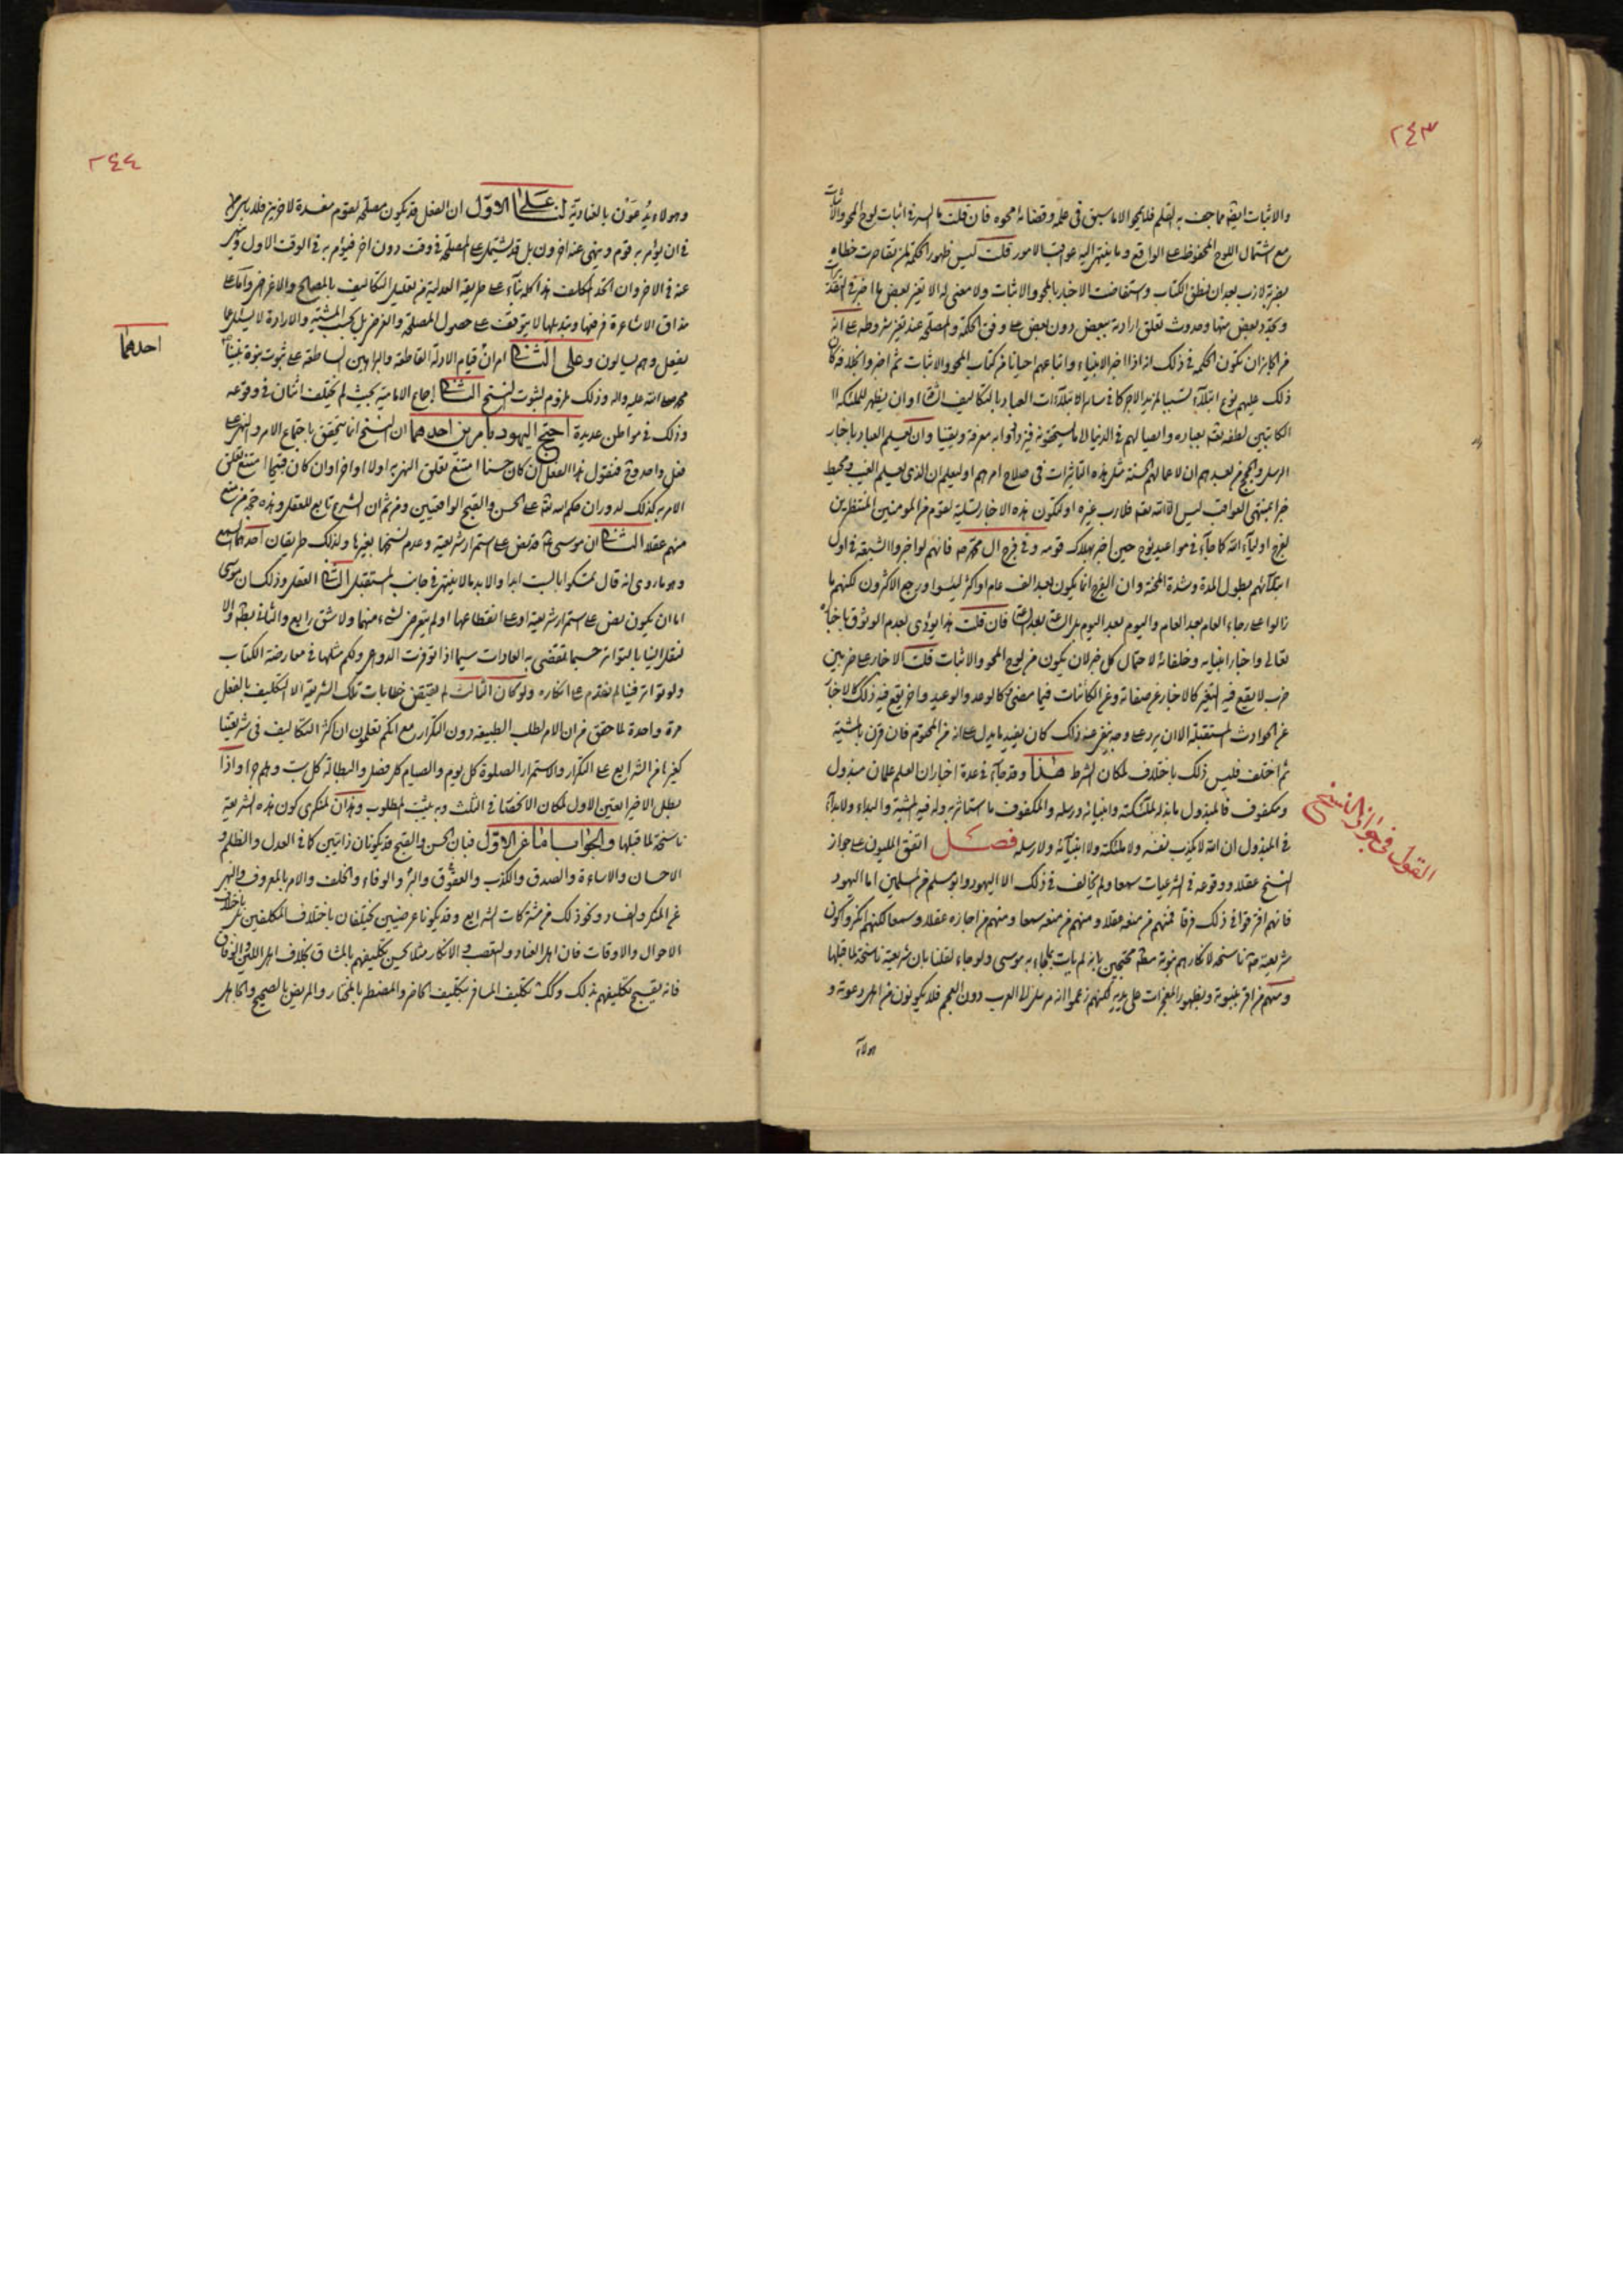 ٢٤٣
والاثبات ايضا مما جف به القلم فلا يمحو الا ما سبق فى علمه وقضائه محوه فان قلت ما السر فى اثبات لوح المحو والاثبات
مع اشتمال اللوح المحفوظ على الواقع وما ينتهى اليه عواقب الامور قلت ليس ظهور الحكمة لمن تقاصرت خطاه
بضربة لازب بعد ان نطق الكتاب واستفاضت الاخبار بالمحو والاثبات ولا معنى له الا تغير بعض ما اخبر
وتجدد بعض منها وحدوث تعلق ارادته ببعض دون بعض على وفق الحكمة والمصلحة عند تغير شروطه على انه
من الجايز ان تكون الحكمة فى ذلك انه اذا اخبر الانبياء واتباعهم احيانا من كتاب المحو والاثبات ثم اخبروا بخلافه كان
ذلك عليهم نوع ابتلاء لتسببا لمزيد الاجر كما فى سائر الابتلاءات العباد بالتكاليف الشاقة او ان يظهر للملئكة
الكاتبين لطفه تعالى بعباده وايصالهم فى الدنيا الى ما يستحقونه فيزدادوا به معرفة ويقينا وان تعليم العباد باخبار
الرسل والحجج من بعدهم ان لاعمالهم الحسنة مثل هذه التاثيرات فى صلاح امرهم او ليعلم ان الذى يعلم الغيب ويحيط
خبرا بمنتهى العواقب ليس الا الله تعالى فلا رب غيره او لتكون هذه الاخبار تسلية لقوم من المومنين المنتظرين
لفرج اولياء الله كما جاء فى مواعيد نوح حين اخبر بهلاك قومه وفى فرج ال محمد فانهم لو اخبروا الشيعة فى اول
ابتلائهم بطول المدة وشدة المحنة وان الفرج انما يكون بعد الف عام او اكثر ليئسوا ورجع الاكثرون لكنهم ما
زالوا على رجاء العام بعد العام واليوم بعد اليوم بل الساعة بعد الساعة فان قلت هذا يؤدى لعدم الوثوق باخباره
تعالى واخبار انبيائه وخلفائه لاحتمال كل خبر لان يكون من لوح المحو والاثبات قلت الاخبار على ضربين
ضرب لا يقع فيه التغير كالاخبار عن صفاته وعن الكائنات فيما مضى وكالوعد والوعيد واخر يقع فيه ذلك كالاخبار
عن الحوادث المستقبلة الا ان يرد على وجه ينبئ عنه ذلك كان يفيد ما يدل على انه من المحتوم فان قرن بالمشية
ثم اختلف فليس ذلك باختلاف لمكان الشرط هذا وقد جاء فى عدة اخبار ان العلم علمان مبذول
ومكفوف فالمبذول ما بذله لملئكته وانبيائه ورسله والمكفوف ما استاثر به وله فيه المشية والبداء ولا بداء
فى المبذول ان الله لا يكذب نفسه ولا ملئكته ولا انبيائه ولا رسله فصل اتفق المليون على جواز
النسخ عقلا ووقوعه فى الشرعيات سمعا ولم يخالف فى ذلك الا اليهود وابو مسلم من المسلمين اما اليهود
فانهم افترقوا فى ذلك فرقا فمنهم من منعه عقلا ومنهم من منعه سمعا ومنهم من اجازه عقلا وسمعا لكنهم انكروا كون
شريعته ناسخة لانكارهم نبوة محتجين بانه لم يات بمثل ما جاء به موسى ولو جاء لقلنا بان شريعته ناسخة لما قبلها
ومنهم من اقر بنبوته وبظهور المعجزات على يديه لكنهم زعموا انه مرسل الى العرب دون العجم فلا يكونون من اهل دعوته و
هولاء
القول فى جواز النسخ
٢٤٤
وهولاء يدعون بالعنادية لنا على الاول ان الفعل قد يكون مصلحة لقوم مفسدة لاخرين فلا باس
فى ان يؤمر به قوم وينهى عنه اخرون بل قد يشتمل على المصلحة فى وقت دون اخر فيؤمر به فى الوقت الاول وينهى
عنه فى الاخر وان اتحد المكلف هذا كله بناء على طريقة العدلية من تعليل التكاليف بالمصالح والاغراض واما على
مذاق الاشاعرة فرفعها وتبديلها لا يتوقف على حصول المصلحة والغرض بل بحسب المشية والارادة لا يسئل عما
يفعل وهم يسالون وعلى الثانى امران قيام الادلة القاطعة والبراهين الساطعة على ثبوت نبوة نبينا
محمد صلى الله عليه واله وذلك ملزوم لثبوت النسخ الثانى اجماع الامامية بحيث لم يختلف اثنان فى وقوعه
وذلك فى مواطن عديدة احتج اليهود بامرين احدهما ان النسخ انما يتحقق باجتماع الامر والنهى على
فعل واحد فنقول هذا الفعل ان كان حسنا امتنع تعلق النهى به اولا او اخرا وان كان قبيحا امتنع تعلق
الامر به كذلك لدوران حكم الله تعالى على الحسن والقبح الواقعيين ومن ثم ان الشرع تابع للعقل وهذه حجة من منع
منهم عقلا الثانى ان موسى قد نص على استمرار شريعته وعدم نسخها بغيرها ولذلك طريقان احدهما السمع
وهو ما روى انه قال تمسكوا بالسبت ابدا والابد ما لا ينتهى فى جانب المستقبل الثانى العقل وذلك ان موسى
اما ان يكون نص على استمرار شريعته او على انقطاعها او لم يتعرض لشىء منهما ولا شق رابع والثانى بطل والا
لنقل الينا بالتواتر حسبما تقتضى به العادات سيما اذا توفرت الدواعى ولكم مثلها فى معارضة الكتاب
ولو تواتر فينا لم نقدم على انكاره ولو كان الثالث لم يقتض خطابات تلك الشريعة الا التكليف بالفعل
مرة واحدة لما حقق من ان الامر لطلب الطبيعة دون التكرار مع انكم تعلمون ان اكثر التكاليف فى شريعتنا
كغيرها من الشرايع على التكرار والاستمرار الصلوة كل يوم والصيام كل فصل والبطالة كل سبت وهلم جرا واذا
بطل الاخيرا تعين الاول لمكان الانحصار فى الثلث وبه يثبت المطلوب وهذان لمنكرى كون هذه الشريعة
ناسخة لما قبلها والجواب اما عن الاول فبان الحسن والقبح قد يكونان ذاتيين كما فى العدل والظلم و
الاحسان والاساءة والصدق والكذب والعقوق والبر والوفاء والخلف والامر بالمعروف والنهى
عن المنكر والفساد ونحو ذلك من مشتركات الشرايع وقد يكونا عرضيين يختلفان باختلاف المكلفين او باختلاف
الاحوال والاوقات فان اهل العناد والتعصب والانكار مثلا يحسن تكليفهم بالمشاق بخلاف اهل اللين والوفاق
فانه يقبح تكليفهم بذلك وكك تكليف المسافر بتكليف الحاضر والمضطر بالمختار والمريض بالصحيح والجاهل
احدهما